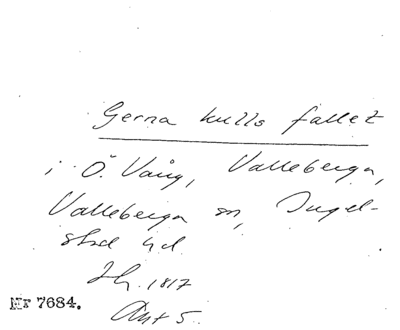 Gerna kulls fallet
i Ö. Vång, Valleberga,
Valleberga sn, Ingel-
stad hd
Jh. 1817
Akt 5.
Nr 7684.